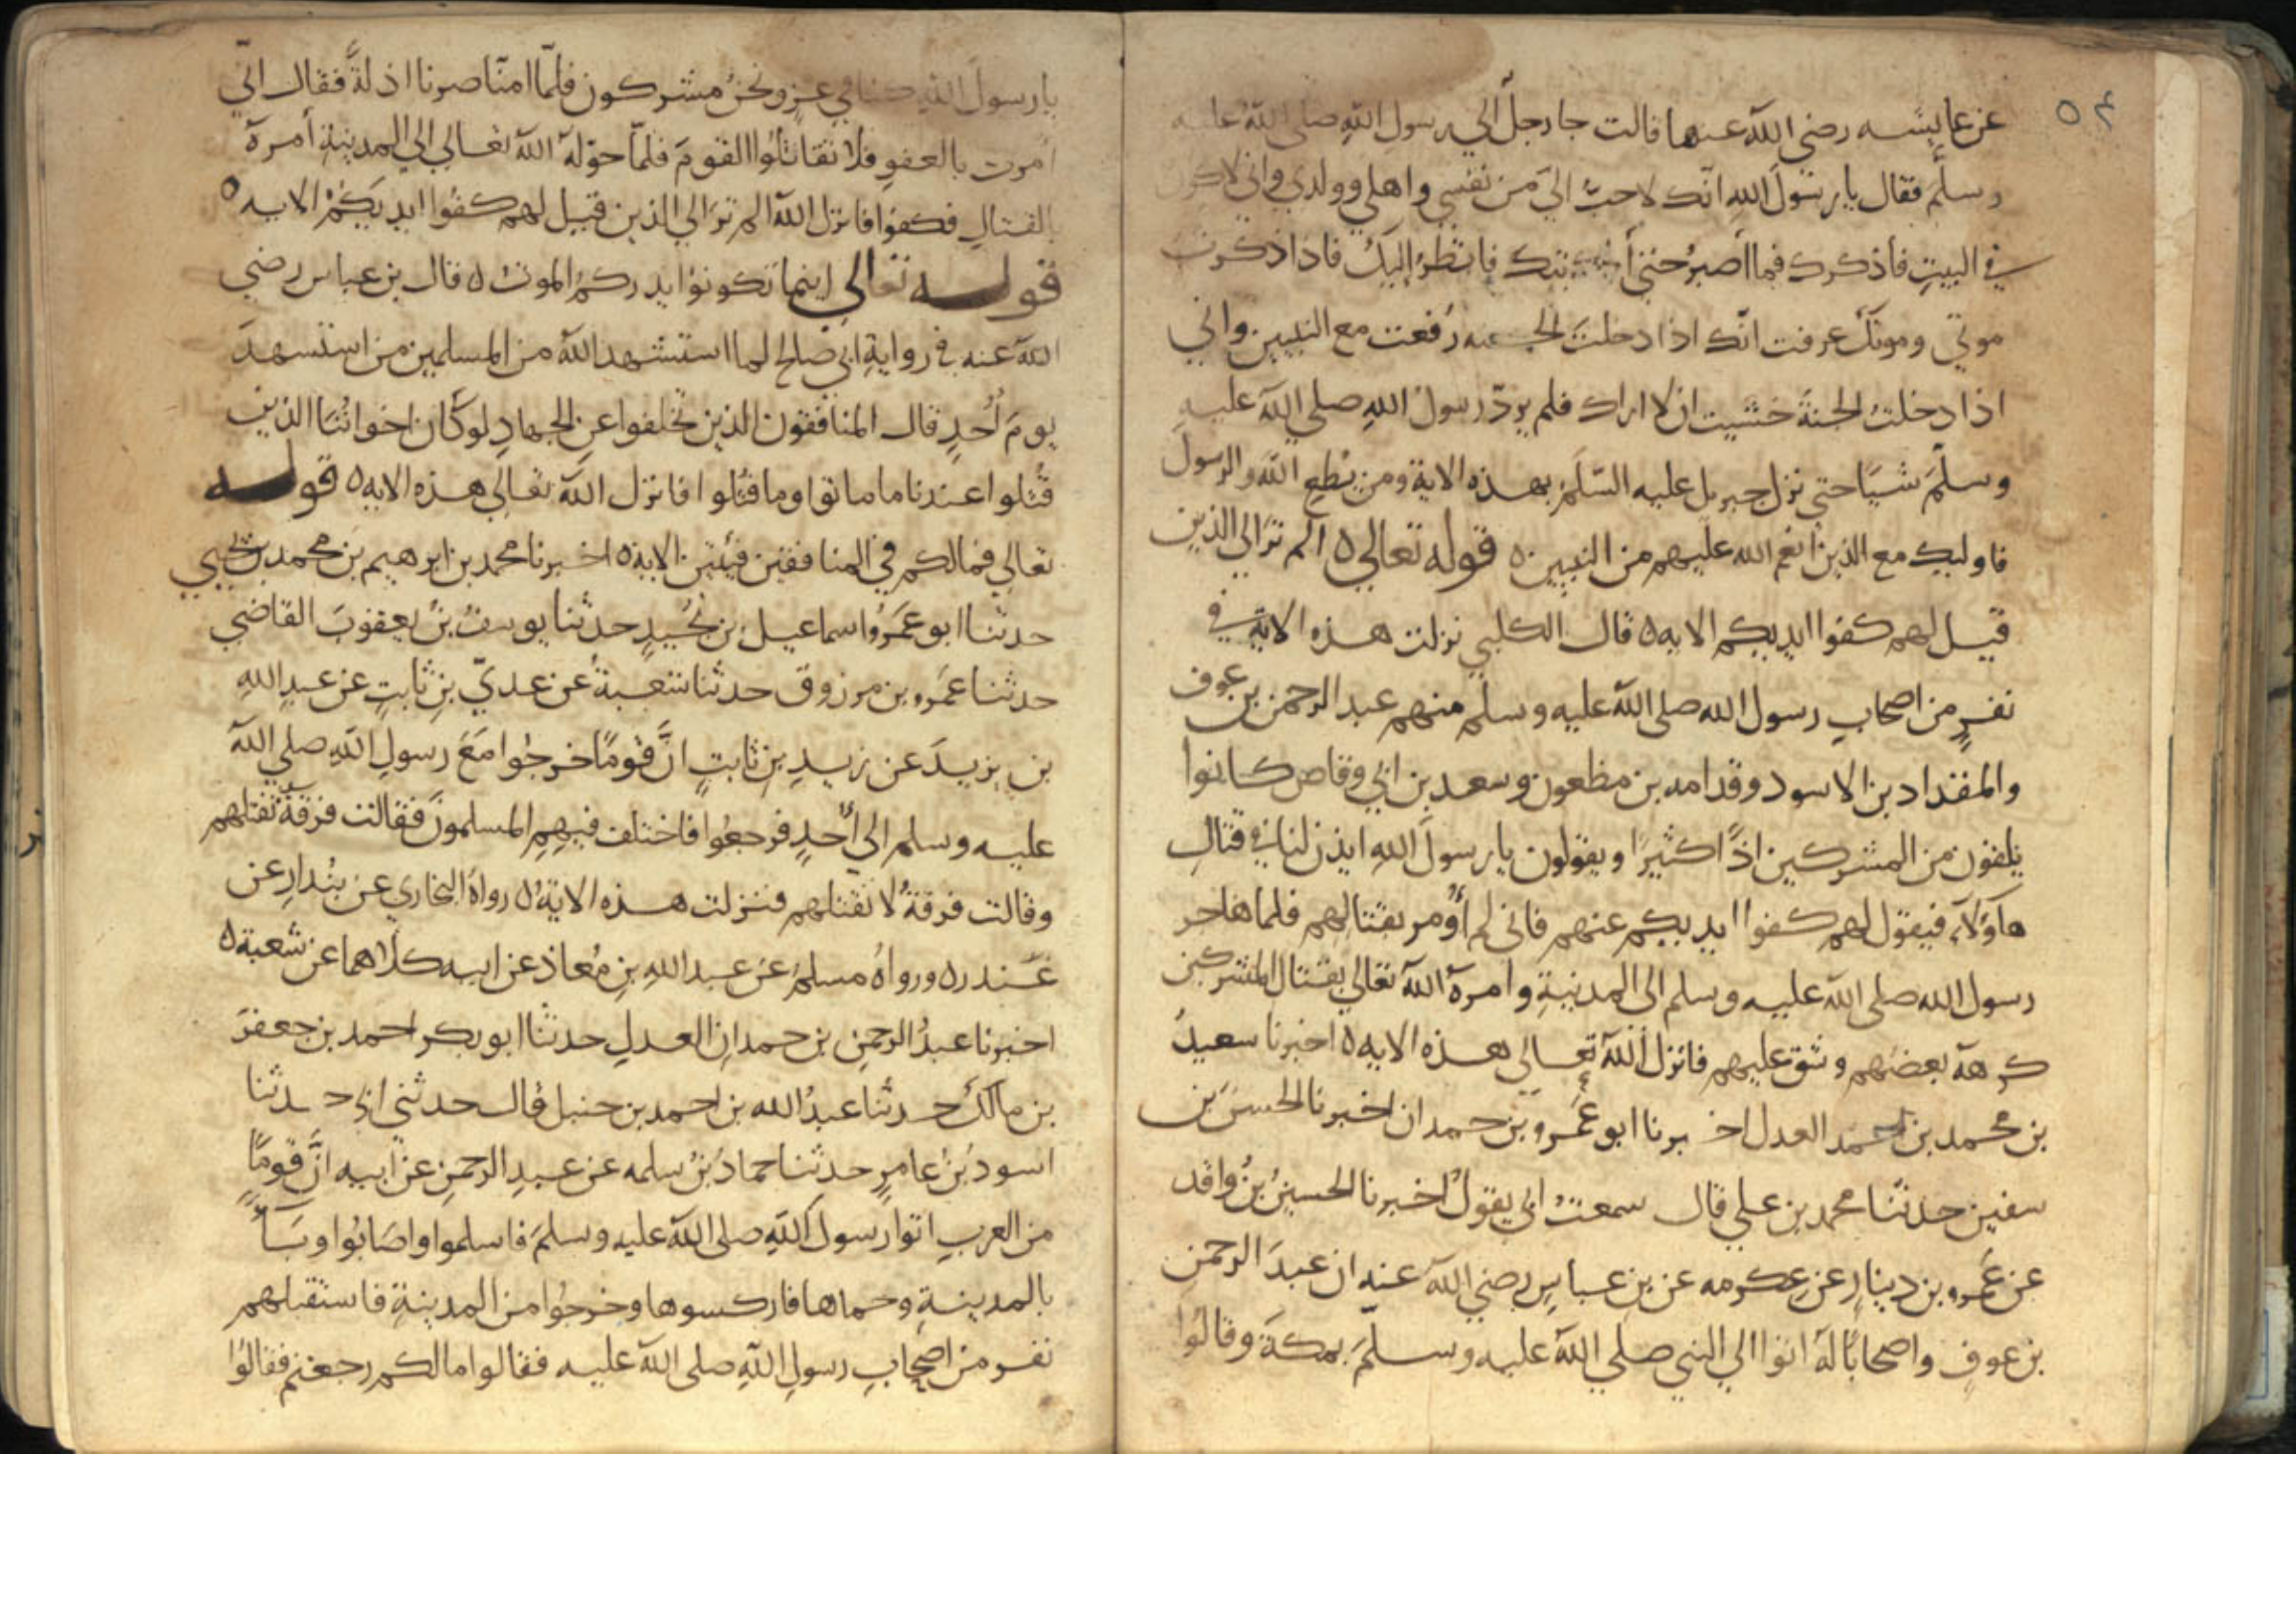 ٥٤
عن عايشه رضي الله عنها قالت جا رجلٌ الي رسول اللهِ صلى اللهُ عليه
وسلَّم فقال يا رسولَ اللهِ انّك لاحبُّ اليَّ من نفسي واهلي وولدي واني لاكون
في البيتِ فأذكرك فما أصبرُ حتى أتيك فانظرُ إليكَ فاذا ذكرت
موتي وموتك عرفت انّك اذا دخلتَ الجنه رُفعت مع النبيين واني
اذا دخلتُ الجنةَ خشيت ان لا اراك فلم يردّ رسولُ اللهِ صلى الله عليهِ
وسلّمَ شيًا حتى نزل جبريل عليه السّلَمُ بهذه الاية ومن يُطعِ اللهَ والرسول
فاوليك مع الذين انعم الله عليهم من النبيين ٥ قوله تعالي ٥ الم ترَ الي الذين
قيل لهم كفوا ايديكم الايه ٥ قال الكلبي نزلت هذه الاية في
نفرٍ من اصحابِ رسول الله صلى الله عليه وسلم منهم عبد الرحمن بن عوف
والمقداد بن الاسود وقدامه بن مظعون وسعد بن ابي وقاص كانوا
يلقون من المشركين اذًا كثيرًا ويقولون يا رسولَ اللهِ ايذن لنا في قتالِ
هاوَلآء فيقول لهم كفوا ايديكم عنهم فاني لم أُومر بقتالهم فلما هاجر
رسول الله صلى الله عليه وسلم الى المدينةِ وامره الله تعالي بقتال المشركين
كرهه بعضهم وشق عليهم فانزل اللهُ تعالي هذه الايه ٥ اخبرنا سعيدُ
بن محمد بن احمد العدل اخبرنا ابو عَمرو بن حمدان اخبرنا الحسن بن
سفين حدثنا محمد بن علي قال سمعتُ ابي يقولُ اخبرنا الحسينُ بنُ واقد
عن عَمرو بن دينارٍ عن عِكرمه عن بن عباسٍ رضي الله عنه ان عبدَ الرحمنِ
بن عوفٍ واصحابًا له اتوا الي النبي صلي الله عليه وسلَّمَ بمكةَ وقالوُا
يا رسولَ اللهِ كنا في عزٍ ونحنُ مشركون فلمّا امنّا صرنا اذلةً فقال انّي
أمرت بالعفوِ فلا تقاتلُوا القومَ فلمّا حوّله الله تعالي الي المدينةِ أمره
بالقتالِ فكفوا فانزل الله الم ترَ الي الذين قيل لهم كفُوا ايديَكُمْ الايه ٥
قوله تعالي اينما تكونوا يدرككمُ الموتُ ٥ قال بن عباس رضي
الله عنه في روايةِ ابي صالح لما استشهد الله من المسلمين من استشهدَ
يومَ أُحدٍ قال المنافقون الذين تخلفوا عنِ الجهادِ لو كان اخوانُنَا الذين
قُتلوا عندنا ما ماتوا وما قُتلوا فانزل الله تعالي هذه الايه ٥ قوله
تعالي فمالكم في المنافقين فيئتين الاية ٥ اخبرنا محمد بن ابرهيم بن محمد بن يحيي
حدثنا ابو عَمَرو اسماعيل بن نجُيدٍ حدثنا يوسفُ بنُ يعقوبَ القاضي
حدثنا عَمرو بن مرزوق حدثنا شعبةُ عن عديّ بنِ ثابتٍ عن عبدِ اللهِ
بن يزيدَ عن زيدِ بنِ ثابتٍ انَّ قومًا خرجُوا مَعَ رسولِ اللهِ صلي الله
عليه وسلم الي أُحدٍ فرجعُوا فاختلف فيهمِ المسلمونَ فقالت فرقةٌ نقتلهم
وقالت فرقةٌ لا نقتلهم فنزلت هذه الايةُ ٥ رواهُ البخاري عن بنُدارِ عن
غندر ٥ ورواهُ مسلمٌ عن عبد اللهِ بنِ مُعاذ عن ابيه كلاهما عن شعبة ٥
اخبرنا عبدُ الرحمنِ بن حمدان العدلِ حدثنا ابو بكر احمد بن جعفرَ
بن مالك حدثنا عبدُ الله بن احمد بن حنبل قال حدثني ابي حدثنا
اسودُ بنُ عامرٍ حدثنا حمادُ بنُ سلمه عن عبدِ الرحمنِ عن ابيه انَّ قومًا
من العربِ اتوا رسولَ اللهِ صلى الله عليه وسلمَ فاسلموا واصَابُوا وبَآءً
بالمدينةِ وحماها فاركسوها وخرجُوا من المدينةِ فاستقبلهم
نفر من اصحابِ رسولِ اللهِ صلى الله عليه فقالوا ما لكم رجعتم فقالوُا